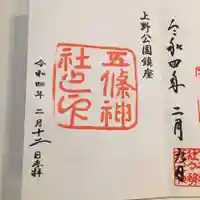 令和四年
二月
上野公園鎮座
五條神
社之印
令和四年 二月十二日参拝